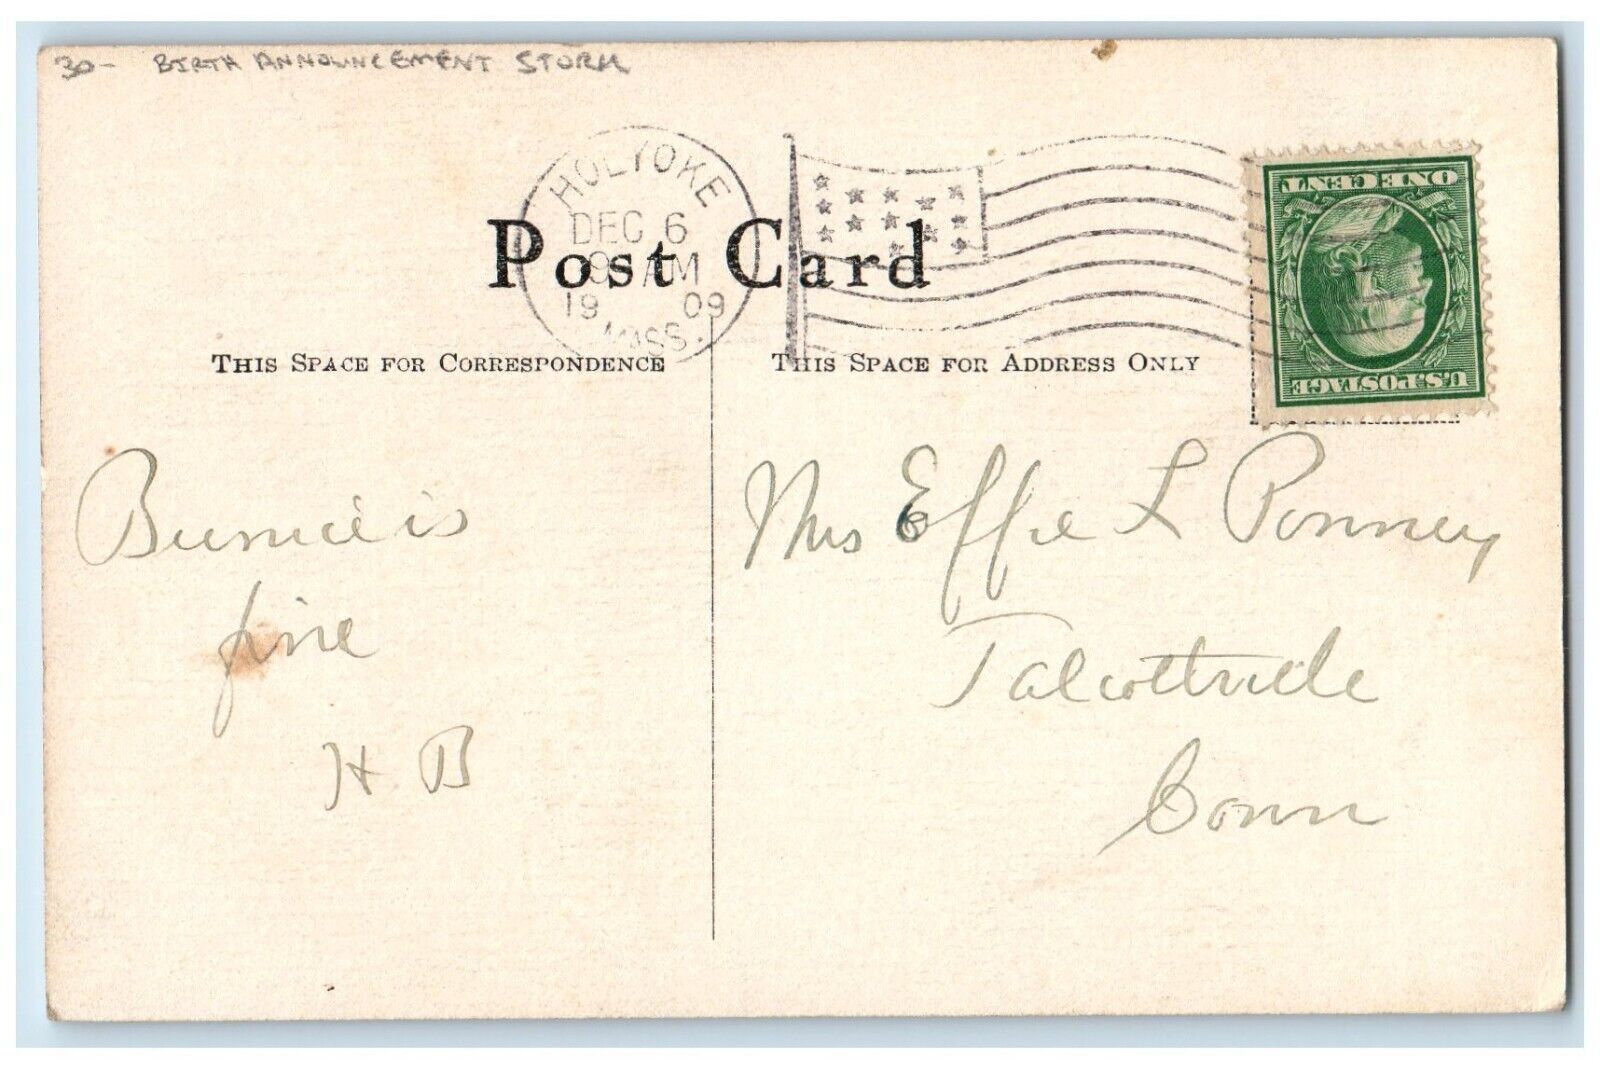 30- BIRTH ANNOUNCEMENT STORK
HOLYOKE
DEC 6
9 AM
1909
MASS.
ONE CENT
U.S. POSTAGE
Post Card
THIS SPACE FOR CORRESPONDENCE
THIS SPACE FOR ADDRESS ONLY
Bernice is
fine
H B
Mrs Effie L Ponney
Talcottville
Conn